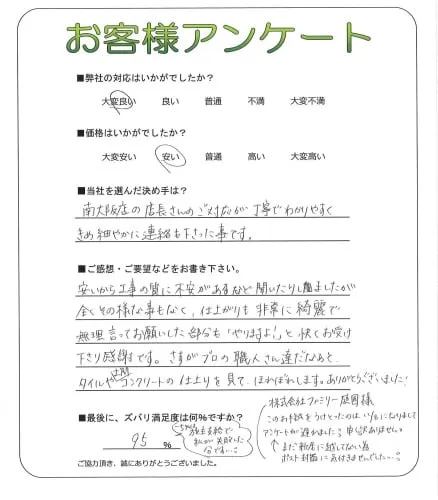 お客様アンケート
■弊社の対応はいかがでしたか?
大変良い 良い 普通 不満 大変不満
■価格はいかがでしたか?
大変安い 安い 普通 高い 大変高い
■当社を選んだ決め手は?
南大阪店の店長さんのご対応が丁寧でわかりやすく
きめ細やかに連絡も下さった事です。
■ご感想・ご要望などをお書き下さい。
安いから工事の質に不安があるなど聞いたりしましたが
全くその様な事もなく、仕上がりも非常に綺麗で
無理言ってお願いした部分も「やりますよ!」と快くお受け
下さり感謝です。さすがプロの職人さん達だなあと、
タイルや土間コンクリートの仕上りを見て、ほれぼれします。ありがとうございました!
■最後に、ズバリ満足度は何%ですか?
95 %
-5%は
施主支給で
私が失敗した
分です…。
株式会社ファミリー庭園様
このお手紙をうけとったのは になりまして
アンケートが遅れました。申し訳ありません。
まだ新居に越してない為
ポスト封筒に気付きませんでした…。
ご協力頂き、誠にありがとうございました。